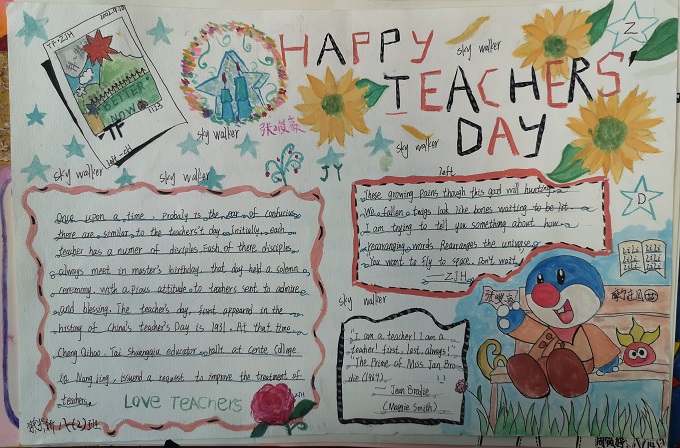 HAPPY
TEACHERS'
DAY
Z
D
TF·ZJH
BETTER
NOW
TF
1123
left-old
sky walker
sky walker
sky walker
sky walker
sky walker
sky walker
JY
left
Once upon a time. Probaly is the ear of confucius
there are similar to the teachers't day. Initially, each
teacher has a numer of disciples. Each of these disciples
always meet in master's birthday. that day held a solemn
ceremony. with a pious attitude to teachers sent to admire
and blessing. The teacher's day, first appeared in the
history of China's teacher's Day is 1931. At that time.
Cheng Qihao. Tai Shuangqiu educator halls at Cente College
in Nanjing, issund a request to improve the treatment of
teachers.
LOVE TEACHERS
These growing pains though this good will hunting
We fallen twigs look like bones waiting to be lit
I am trying to tell you something about how
rearranging words Rearranges the universe
You want to fly to space. Don't wait
——ZJH
sky walker
"I am a teacher! I am a
teacher! first, last, always!"
"The Prime of Miss Jan Bro
die (1969)
—Jean Brodie
(Maggie Smith)
ZJH
八(2)班